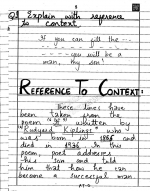 Q1 Explain with reference
to context.
If you can fill the --
- - - - - - - -
- - - - you will be a
man, my son!
REFERENCE TO CONTEXT:
These lines have
been taken from the
poem "If" written by
"Rudyard Kipling" who
was born in 1865 and
died in 1936. In this
poem, poet addresses
his son and told
him that how he can
become a successful man
P.T.O